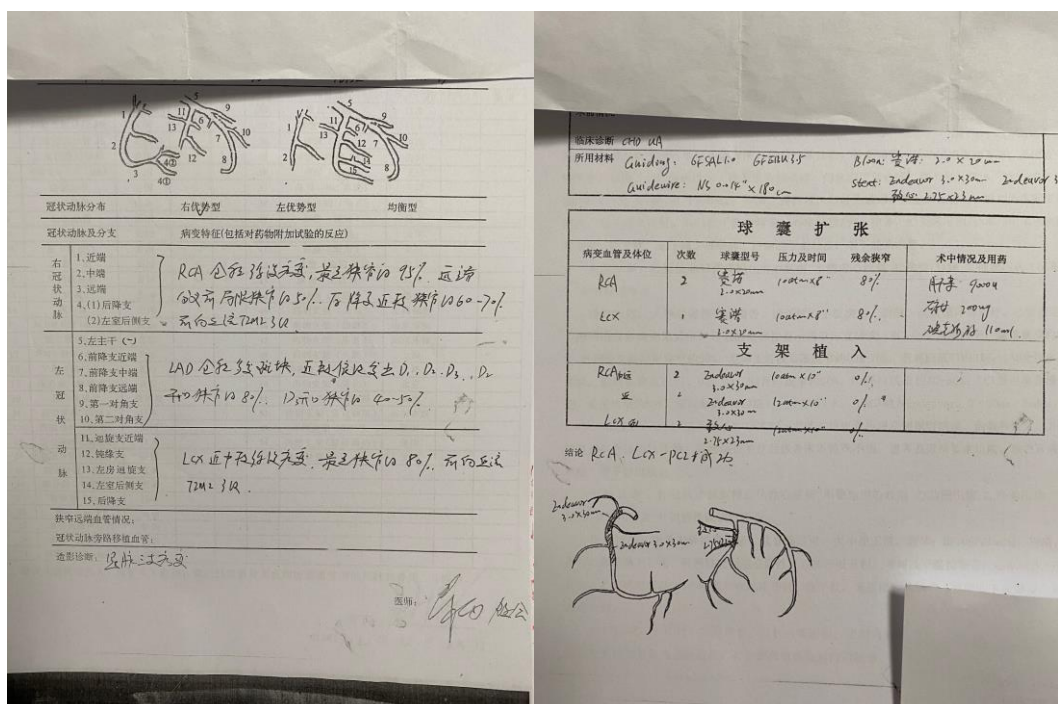 1
2
3
4②
4①
5
6
7
8
9
10
11
12
13
1
2
5
6
7
8
9
10
11
12
13
14
15
冠状动脉分布 右优势型 左优势型 均衡型
冠状动脉及分支 病变特征(包括对药物附加试验的反应)
右冠状动脉
1.近端
2.中端
3.远端
4.(1)后降支
(2)左室后侧支
RCA 全程弥漫病变,最重狭窄约95%. 远端
分叉前局限狭窄约50%. 后降支近段狭窄约60-70%
前向血流TIMI 3级
左冠状动脉
5.左主干 (-)
6.前降支近端
7.前降支中端
8.前降支远端
9.第一对角支
10.第二对角支
LAD 全程多发斑块, 近段依次发出D1. D2. D3. D2
开口狭窄约80%. D3开口狭窄约40-50%.
11.迴旋支近端
12.钝缘支
13.左房迴旋支
14.左室后侧支
15.后降支
LCX 近中段弥漫病变, 最重狭窄约80%. 前向血流
TIMI 3级.
狭窄远端血管情况:
冠状动脉旁路移植血管:
造影诊断:
医师:
临床诊断 CHD UA
所用材料 Guiding: 6FSAL1.0 6FEBU3.5 2.0×20mm
Guidewire: NS 0.014"×180cm Stent: Endeavor 3.0×30mm Endeavor 3
2.75×23mm
球囊扩张
病变血管及体位 次数 球囊型号 压力及时间 残余狭窄 术中情况及用药
RCA 2 赛诺 10atm×8" 80% 肝素 9000u
2.0×20mm
LCX 1 赛诺 10atm×8" 80%. 200ug
2.0×20mm 110ml
支架植入
RCA 2 Endeavor 10atm×10" 0%
3.0×30mm
Endeavor 12atm×10" 0%
3.0×30mm
LCX 2 12atm×10" 0%
2.75×23mm
结论 RCA. LCX-PCI术成功
Endeavor
3.0×30mm
Endeavor 3.0×30mm
2.75×23